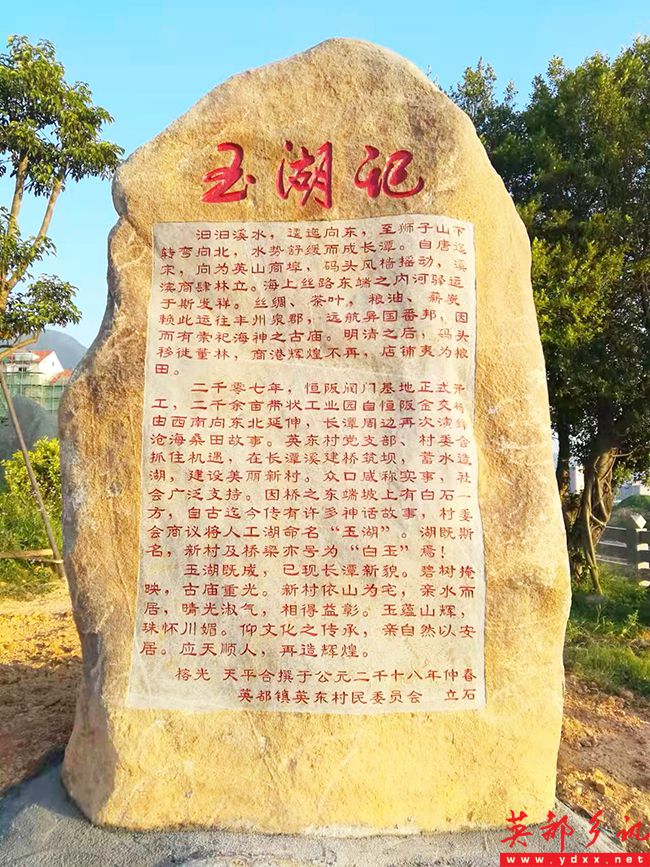 玉湖记
汩汩溪水，逶迤向东，至狮子山下
转弯向北，水势舒缓而成长潭。自唐迄
宋，向为英山商埠，码头风樯摇动，溪
滨商肆林立。海上丝路东端之内河驿运
于斯发祥。丝绸、茶叶，粮油、薪炭
赖此运往丰州泉郡，远航异国番邦，因
而有崇祀海神之古庙。明清之后，码头
移徙董林，商港辉煌不再，店铺夷为粮
田。
二千零七年，恒阪阀门基地正式开
工，二千余亩带状工业园自恒阪金交椅
由西南向东北延伸，长潭周边再次演绎
沧海桑田故事。英东村党支部、村委会
抓住机遇，在长潭溪建桥筑坝，蓄水造
湖，建设美丽新村。众口咸称实事，社
会广泛支持。因桥之东端坡上有白石一
方，自古迄今传有许多神话故事，村委
会商议将人工湖命名“玉湖”。湖既斯
名，新村及桥梁亦号为“白玉”焉！
玉湖既成，已现长潭新貌。碧树掩
映，古庙重光。新村依山为宅，亲水而
居，晴光淑气，相得益彰。玉蕴山辉，
珠怀川媚。仰文化之传承，亲自然以安
居。应天顺人，再造辉煌。
榕光 天平合撰于公元二千十八年仲春
英都镇英东村民委员会 立石
英都乡讯
www.ydxx.net